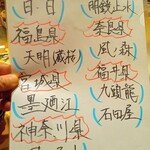 日・日
福島県
天明(蔵桜)
宮城県
墨廼江
神奈川県
明鏡止水
奈良県
風ノ森
福井県
九頭龍
石田屋